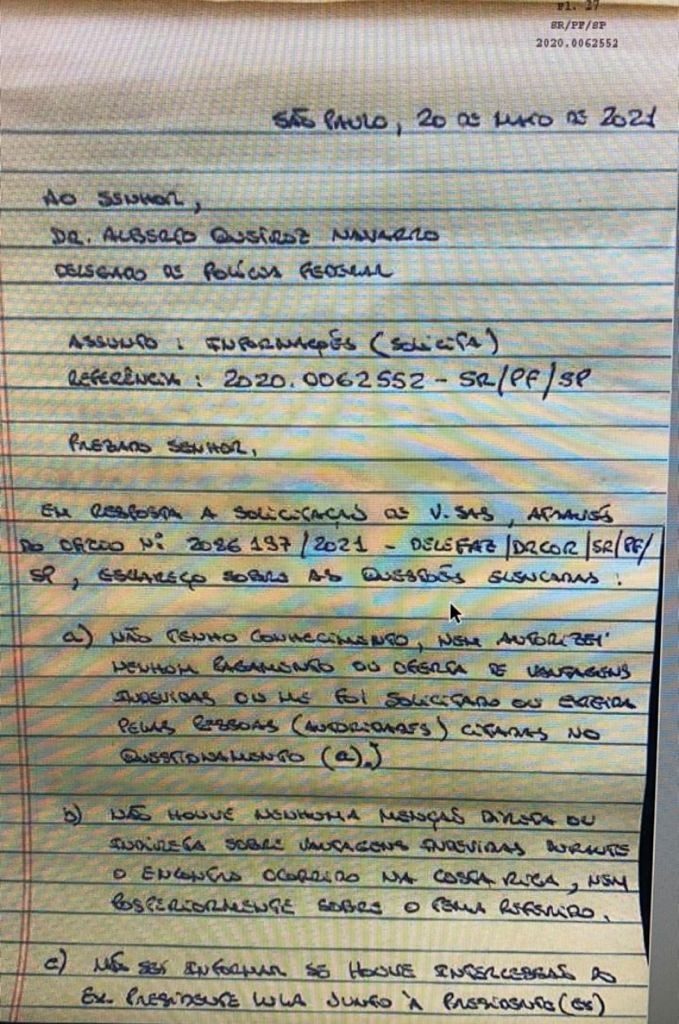 Fl. 27
SR/PF/SP
2020.0062552
SÃO PAULO, 20 DE MAIO DE 2021
AO SENHOR,
DR. ALBERTO QUEIROZ NAVARRO
DELEGADO DE POLÍCIA FEDERAL
ASSUNTO: INFORMAÇÕES (SOLICITA)
REFERÊNCIA: 2020.0062552 - SR/PF/SP
PREZADO SENHOR,
EM RESPOSTA A SOLICITAÇÃO DE V.SAS, ATRAVÉS
DO OFÍCIO Nº 2086197/2021 - DELEFAZ/DRCOR/SR/PF/
SP, ESCLAREÇO SOBRE AS QUESTÕES ELENCADAS:
a) NÃO TENHO CONHECIMENTO, NEM AUTORIZEI
NENHUM PAGAMENTO OU OFERTA DE VANTAGENS
INDEVIDAS OU ME FOI SOLICITADO OU EXIGIDA
PELAS PESSOAS (AUTORIDADES) CITADAS NO
QUESTIONAMENTO (a).)
b) NÃO HOUVE NENHUMA MENÇÃO DIRETA OU
INDIRETA SOBRE VANTAGENS INDEVIDAS DURANTE
O ENCONTRO OCORRIDO NA COSTA RICA, NEM
POSTERIORMENTE SOBRE O TEMA REFERIDO.
c) NÃO SEI INFORMAR SE HOUVE INTERCESSÃO DO
EX. PRESIDENTE LULA JUNTO À PRESIDENTE (EX)